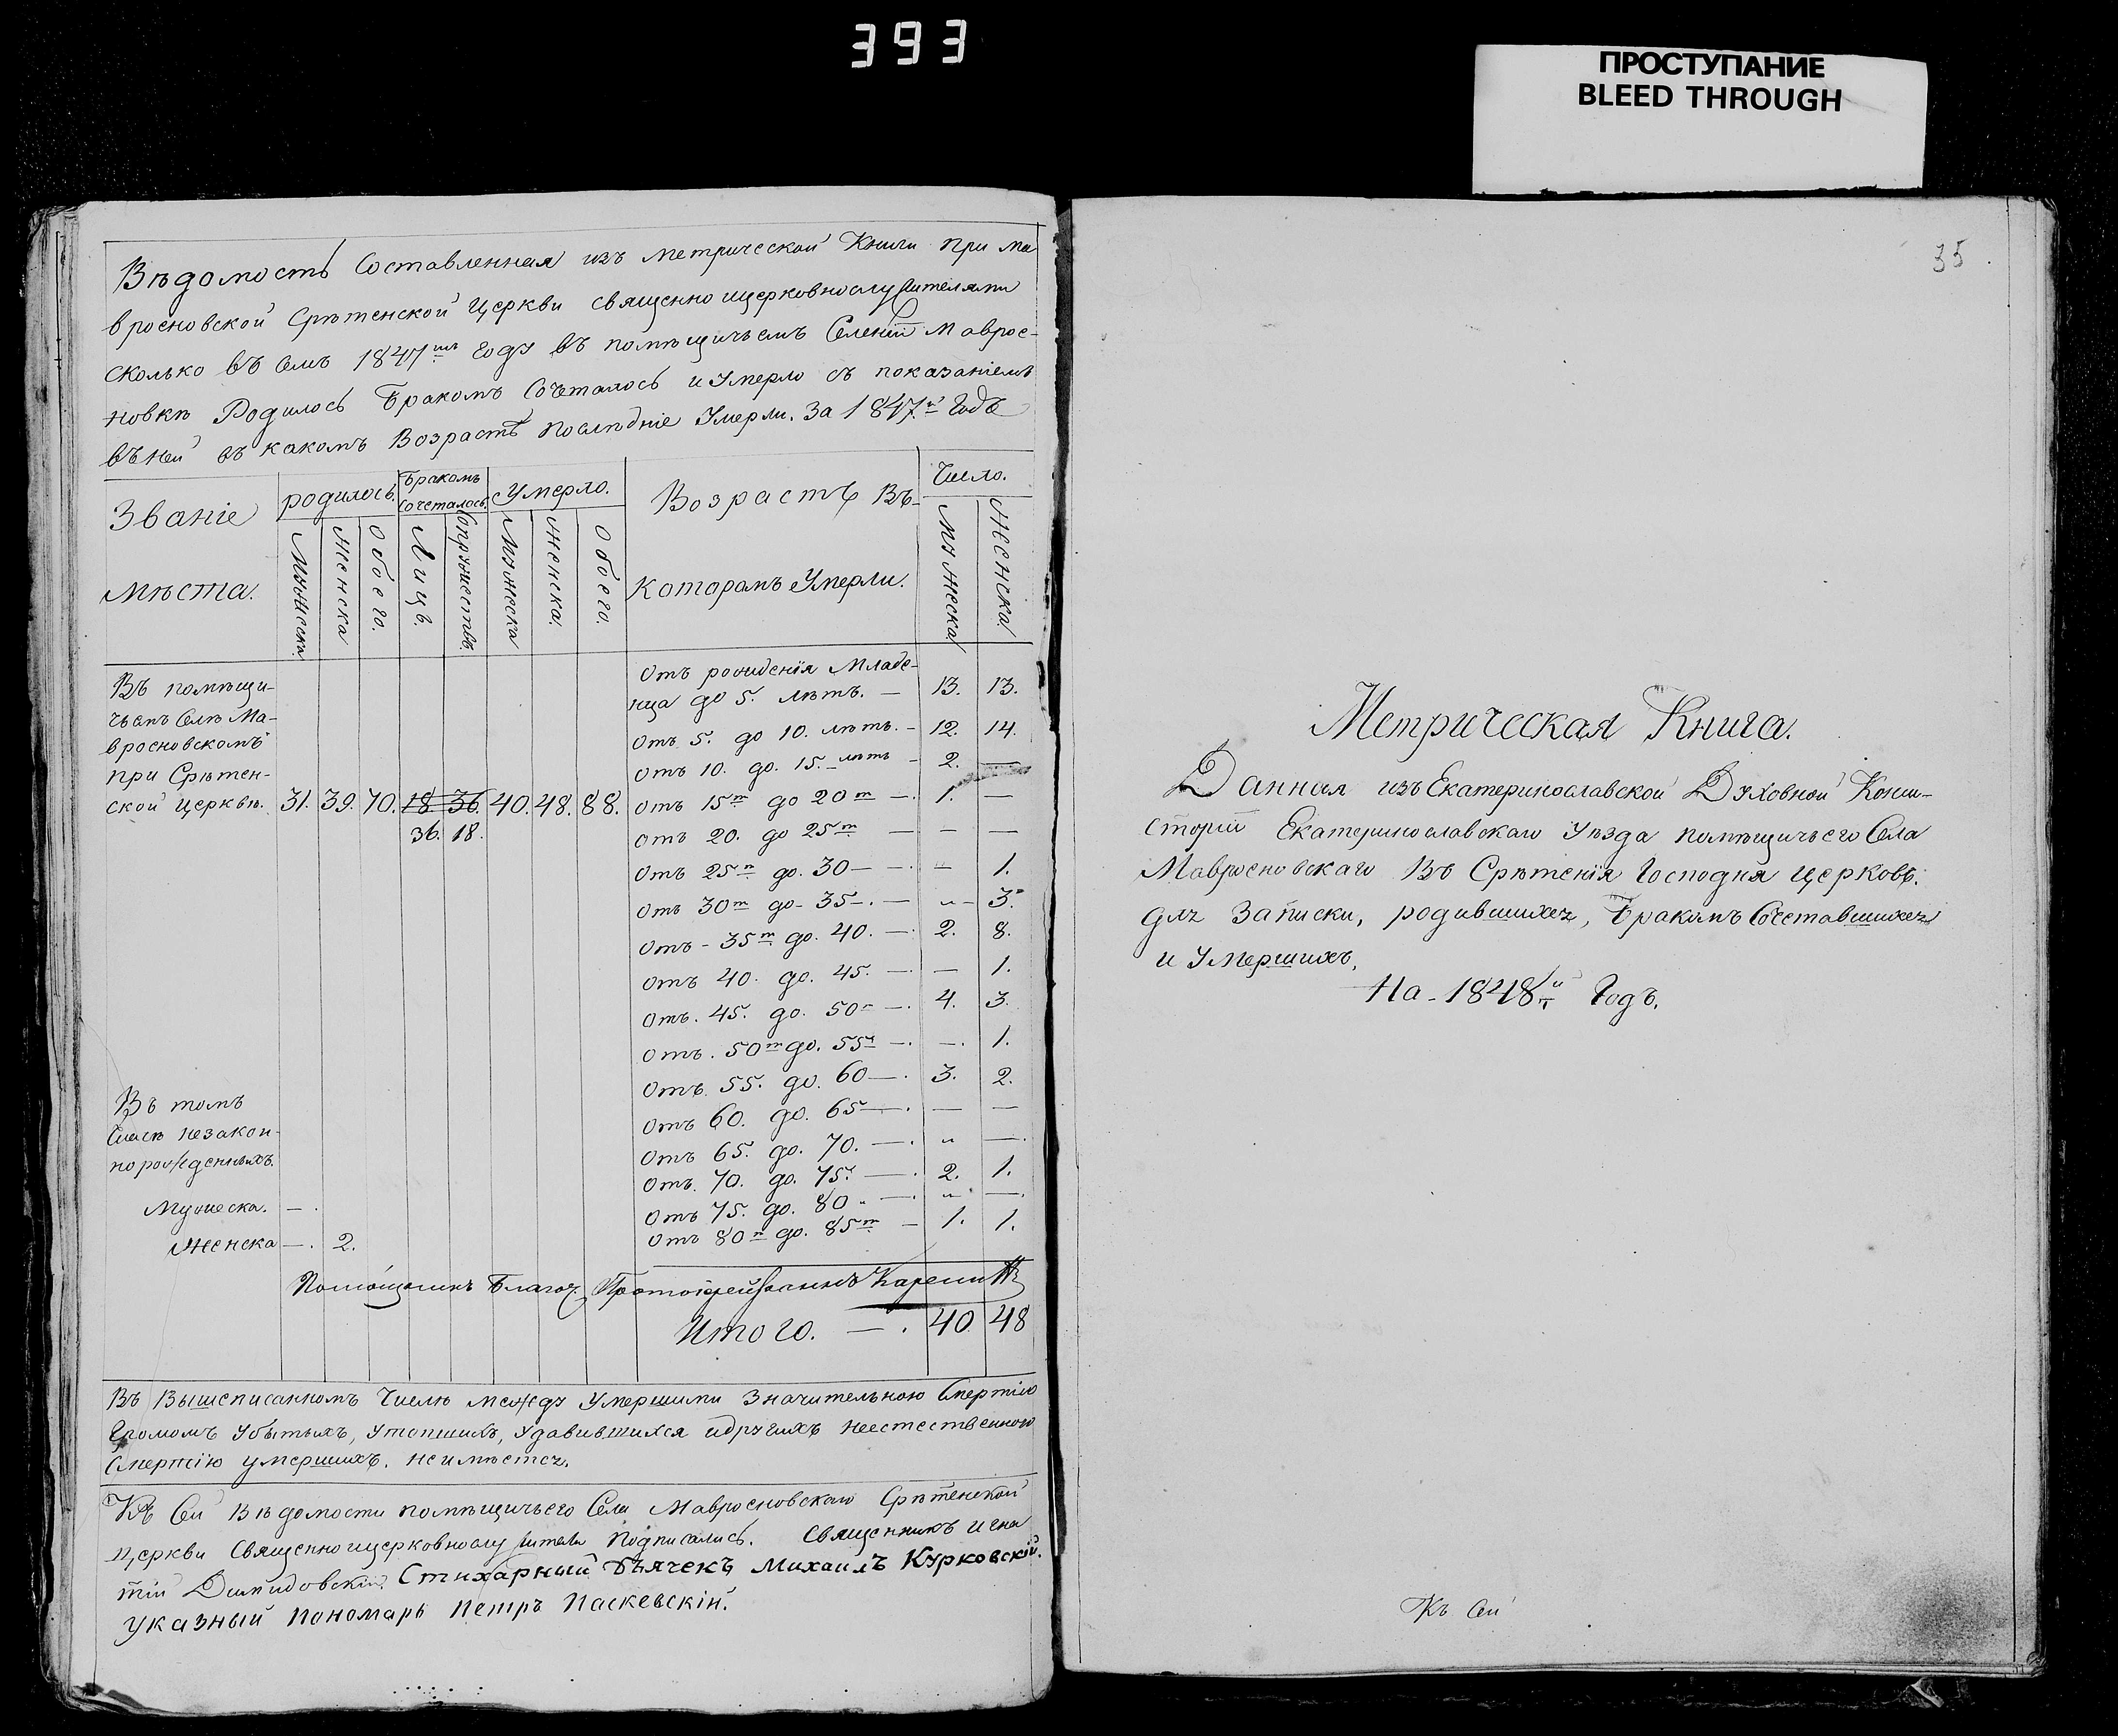 393
ПРОСТУПАНИЕ
BLEED THROUGH
Вѣдомость Составленная изъ метрической Книги при Ма
вросновской Срѣтенской Церкви священноицерковнослужителями
сколько въ семъ 1847мъ году въ помѣщичьемъ Селеніи Маврос-
новкѣ Родилось Бракомъ Сочеталось и Умерло съ показаніемъ
въ ней въ какомъ Возрастѣ послѣдніе Умерли. За 1847й Годъ
Званіе мѣста.
родилось.
Бракомъ Сочеталось.
Умерло.
Возрастъ Въ
которомъ Умерли.
Число.
Мужеска.
Женска
Обоего.
Лицъ.
Супружествъ.
Мужеска
Женска.
Обоего.
Мужеска
Женска
Въ помѣщи-
чьемъ Селѣ Ма-
вросновскомъ
при Срѣтен-
ской Церквѣ. 31. 39. 70. 18 36 40. 48. 88.
36. 18.
Отъ рожденія Младе-
нца до 5. лѣтъ. — 13. 13.
Отъ 5. до 10. лѣтъ. - 12. 14.
Отъ 10. до. 15. лѣтъ - 2. —
Отъ 15т до 20т — 1. —
Отъ 20. до 25т — — —
Отъ 25т до. 30 — — 1.
Отъ 30т до - 35 -. — „ - 3.
Отъ - 35т до. 40. — 2. 8.
Отъ 40. до. 45. — — 1.
Отъ. 45. до. 50 — 4. 3.
Отъ. 50т до. 55т —. —. 1.
Отъ. 55. до. 60 —. 3. 2.
Отъ 60. до. 65 —. — —
Отъ 65. до. 70. —. „ —.
Отъ. 70. до. 75. —. 2. 1.
Отъ 75. до. 80. —. „ —.
Отъ 80т до. 85т — 1. 1.
Въ томъ
Числѣ незакон-
норожденныхъ.
Мужеска. — .
Женска — . 2.
Помощникъ Благоч. Протоіерей Іоаннъ
Итого. — . 40. 48
Въ Вышеписанномъ Числѣ между Умершими Значительною Смертію
Громомъ Убытыхъ, Утопшихъ, Удавившихся идругихъ неестественною
Смертію умершихъ. неимѣется.
Къ Сей Вѣдомости помѣщичьего Села Мавросновскаго Срѣтенской
Церкви Священноицерковнослужители Подписались. Священникъ Игна
тій Стихарный Дьячекъ Михаилъ Курковскій.
Указный Пономарь Петръ Паскевскій.
35.
Метрическая Книга.
Данная изъ Екатеринославской Духовной Конси-
сторіи Екатеринославскаго Уѣзда помѣщичьего Села
Мавросновскаго Въ Срѣтенія Господня Церковь.
для Записки, родившихся, Бракомъ Сочетавшихся
и Умершихъ,
На - 1848й Годъ.
Къ Сей